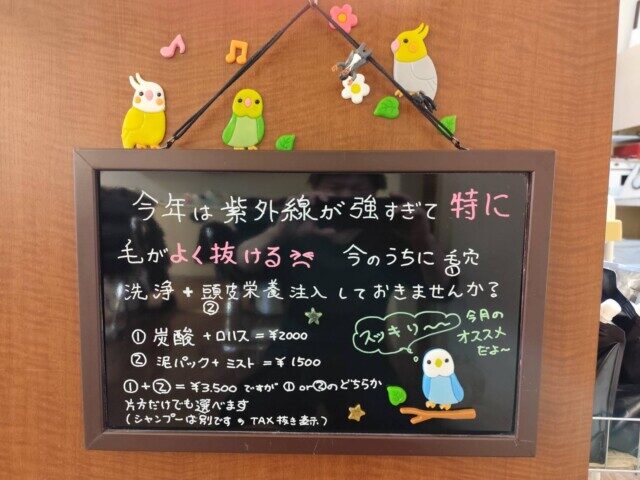 今年は紫外線が強すぎて 特に
毛がよく抜ける 今のうちに 毛穴
①
洗浄 + 頭皮栄養 注入 しておきませんか?
②
① 炭酸 + ロリス = ¥2000
② 泥パック + ミスト = ¥1500
①+② = ¥3.500 ですが ① or ②のどちらか
片方だけでも選べます
(シャンプーは別です TAX抜き表示)
スッキリ〜〜
今月の
オススメ
だよ〜